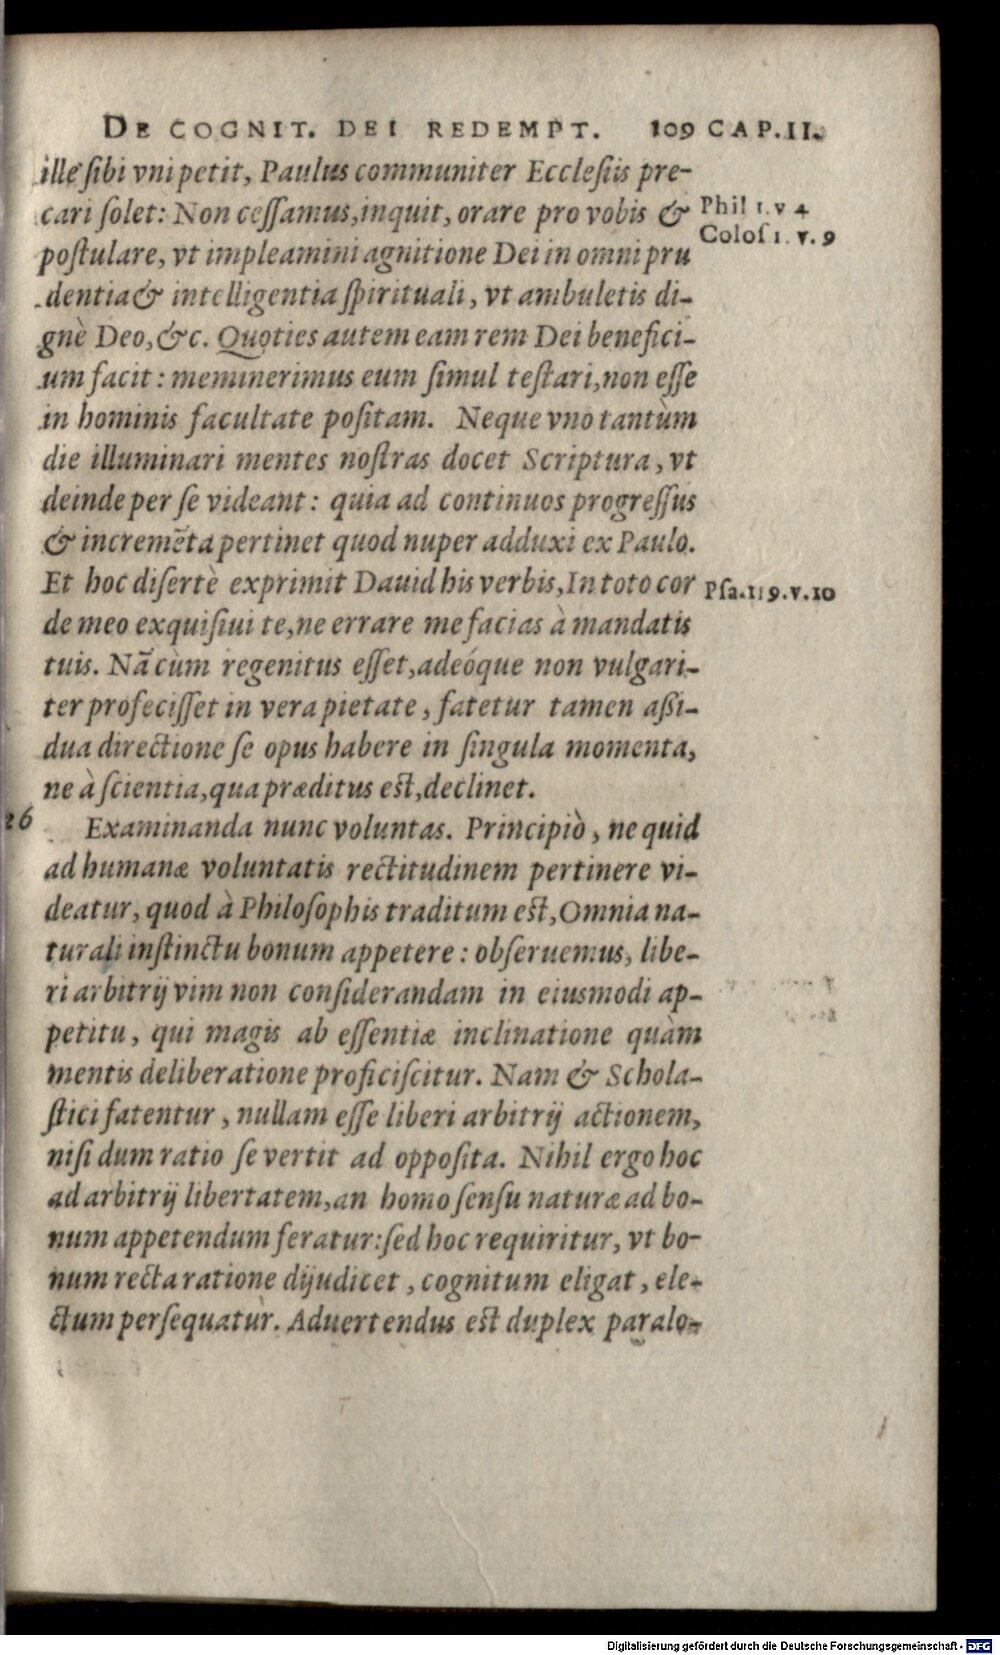 DE COGNIT. DEI REDEMPT. 109 CAP. II.
ille sibi vni petit, Paulus communiter Ecclesiis pre-
cari solet: Non cessamus, inquit, orare pro vobis &
Phil 1. v 4
Colos 1. v. 9
postulare, vt impleamini agnitione Dei in omni pru
dentia & intelligentia spirituali, vt ambuletis di-
gnè Deo, &c. Quoties autem eam rem Dei benefici-
um facit: meminerimus eum simul testari, non esse
in hominis facultate positam. Neque vno tantùm
die illuminari mentes nostras docet Scriptura, vt
deinde per se videant: quia ad continuos progressus
& incremēta pertinet quod nuper adduxi ex Paulo.
Et hoc disertè exprimit Dauid his verbis, In toto cor
Psa. 119. v. 10
de meo exquisiui te, ne errare me facias à mandatis
tuis. Nā cùm regenitus esset, adeóque non vulgari-
ter profecisset in vera pietate, fatetur tamen aßi-
dua directione se opus habere in singula momenta,
ne à scientia, qua præditus est, declinet.
26 Examinanda nunc voluntas. Principiò, ne quid
ad humanæ voluntatis rectitudinem pertinere vi-
deatur, quod à Philosophis traditum est, Omnia na-
turali instinctu bonum appetere: obseruemus, libe-
ri arbitrij vim non considerandam in eiusmodi ap-
petitu, qui magis ab essentiæ inclinatione quàm
mentis deliberatione proficiscitur. Nam & Schola-
stici fatentur, nullam esse liberi arbitrij actionem,
nisi dum ratio se vertit ad opposita. Nihil ergo hoc
ad arbitrij libertatem, an homo sensu naturæ ad bo-
num appetendum feratur: sed hoc requiritur, vt bo-
num recta ratione dijudicet, cognitum eligat, ele-
ctum persequatur. Aduertendus est duplex paralo-
Digitalisierung gefördert durch die Deutsche Forschungsgemeinschaft - DFG